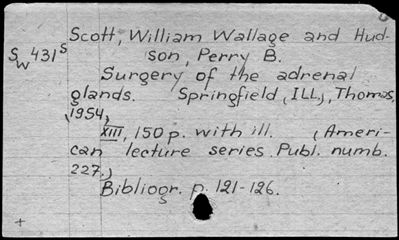 Scott, William Wallage and Hud-
Sw431s
son, Perry B.
Surgery of the adrenal
glands. Springfield, (ILL), Thomas,
(1954)
XIII, 150 p. with ill. (Ameri-
can lecture series. Publ. numb.
227.)
Bibliogr. p. 121-126.
+